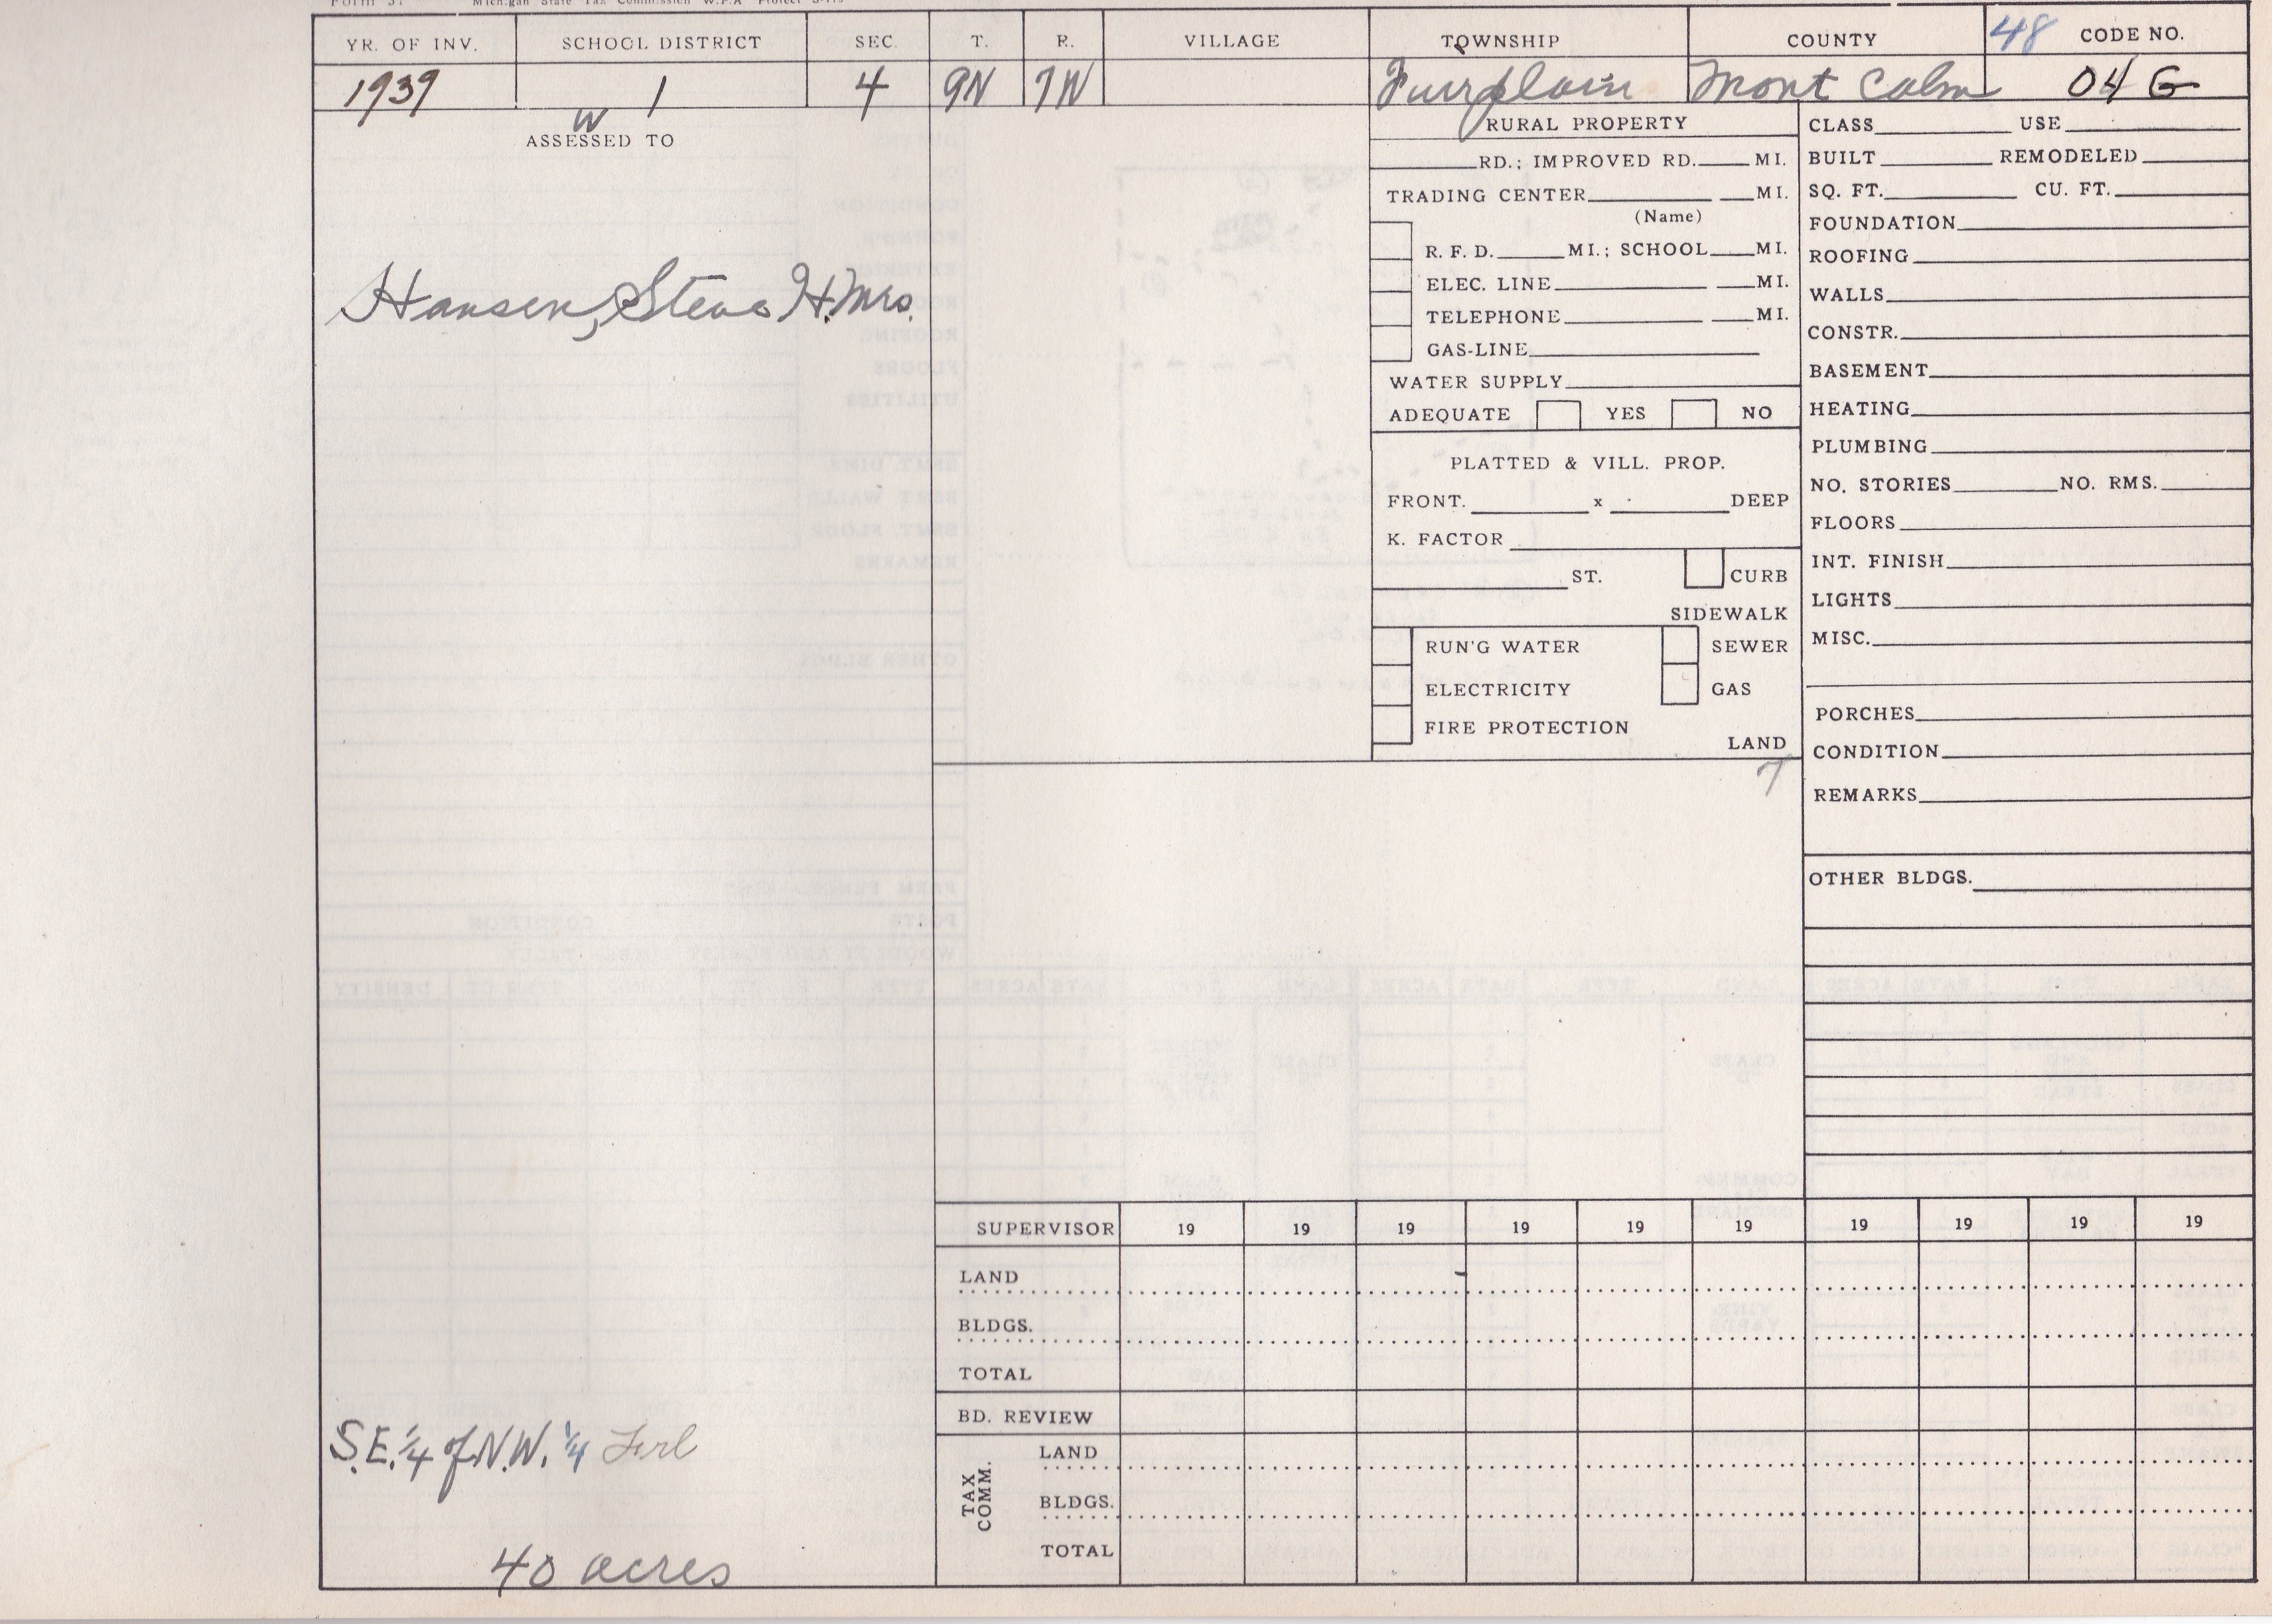 Form 3. Michigan State Tax Commission W.P.A Project
YR. OF INV. SCHOOL DISTRICT SEC. T. R. VILLAGE TOWNSHIP COUNTY 48 CODE NO.
1939 1 4 9N 7W Fairplain Mont Calm 04 G
W
ASSESSED TO
Hansen, Steve H. Mrs.
S.E. 1/4 of N.W. 1/4 Frl
40 acres
RURAL PROPERTY
RD.; IMPROVED RD. MI.
TRADING CENTER MI.
(Name)
R. F. D. MI.; SCHOOL MI.
ELEC. LINE MI.
TELEPHONE MI.
GAS-LINE
WATER SUPPLY
ADEQUATE YES NO
PLATTED & VILL. PROP.
FRONT. x DEEP
K. FACTOR
ST. CURB
SIDEWALK
RUN'G WATER SEWER
ELECTRICITY GAS
FIRE PROTECTION
LAND
7
CLASS USE
BUILT REMODELED
SQ. FT. CU. FT.
FOUNDATION
ROOFING
WALLS
CONSTR.
BASEMENT
HEATING
PLUMBING
NO. STORIES NO. RMS.
FLOORS
INT. FINISH
LIGHTS
MISC.
PORCHES
CONDITION
REMARKS
OTHER BLDGS.
SUPERVISOR 19 19 19 19 19 19 19 19 19 19
LAND
BLDGS.
TOTAL
BD. REVIEW
TAX COMM.
LAND
BLDGS.
TOTAL